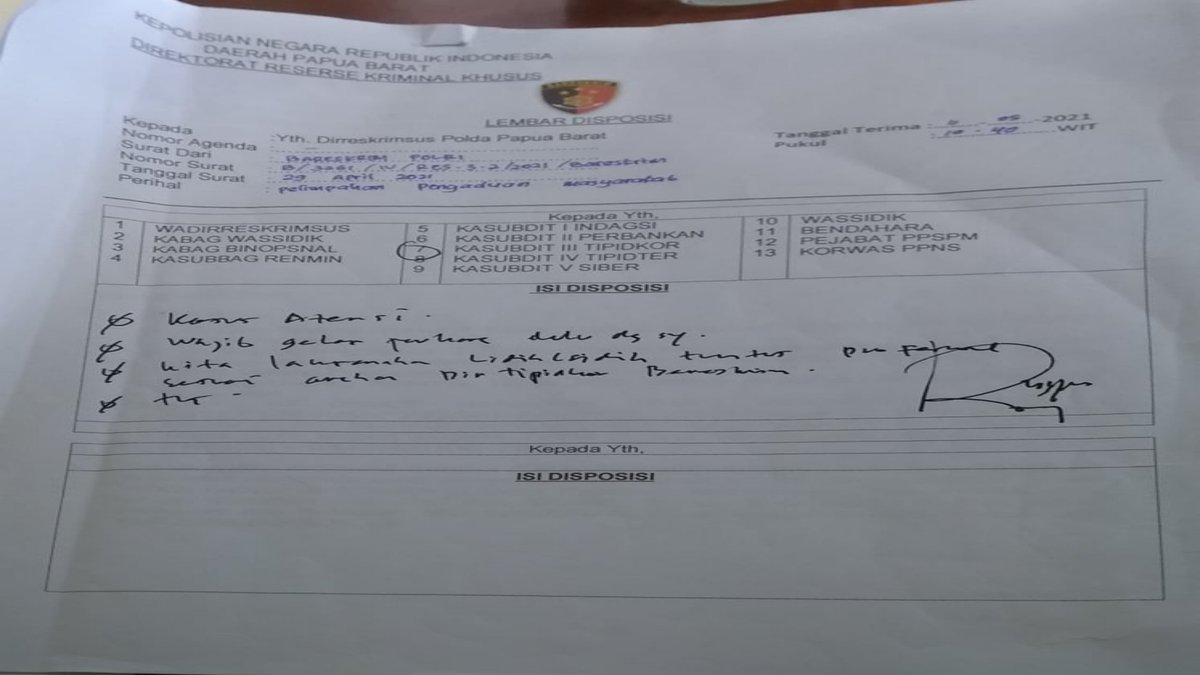 KEPOLISIAN NEGARA REPUBLIK INDONESIA
DAERAH PAPUA BARAT
DIREKTORAT RESERSE KRIMINAL KHUSUS
LEMBAR DISPOSISI
Kepada : Yth. Dirreskrimsus Polda Papua Barat
Nomor Agenda :
Surat Dari : BARESKRIM POLRI
Nomor Surat : /2021 / Bareskrim
Tanggal Surat : 29 April 2021
Perihal : pelimpahan pengaduan masyarakat
Tanggal Terima : - 05 - 2021
Pukul : 10 - 40 WIT
Kepada Yth,
1 WADIRRESKRIMSUS
2 KABAG WASSIDIK
3 KABAG BINOPSNAL
4 KASUBBAG RENMIN
5 KASUBDIT I INDAGSI
6 KASUBDIT II PERBANKAN
7 KASUBDIT III TIPIDKOR
8 KASUBDIT IV TIPIDTER
9 KASUBDIT V SIBER
10 WASSIDIK
11 BENDAHARA
12 PEJABAT PPSPM
13 KORWAS PPNS
ISI DISPOSISI
Kasus Atensi.
Wajib gelar perkara dulu dg sy.
kita laksanakan
sesuai arahan Dir Tipidkor Bareskrim.
Kepada Yth,
ISI DISPOSISI